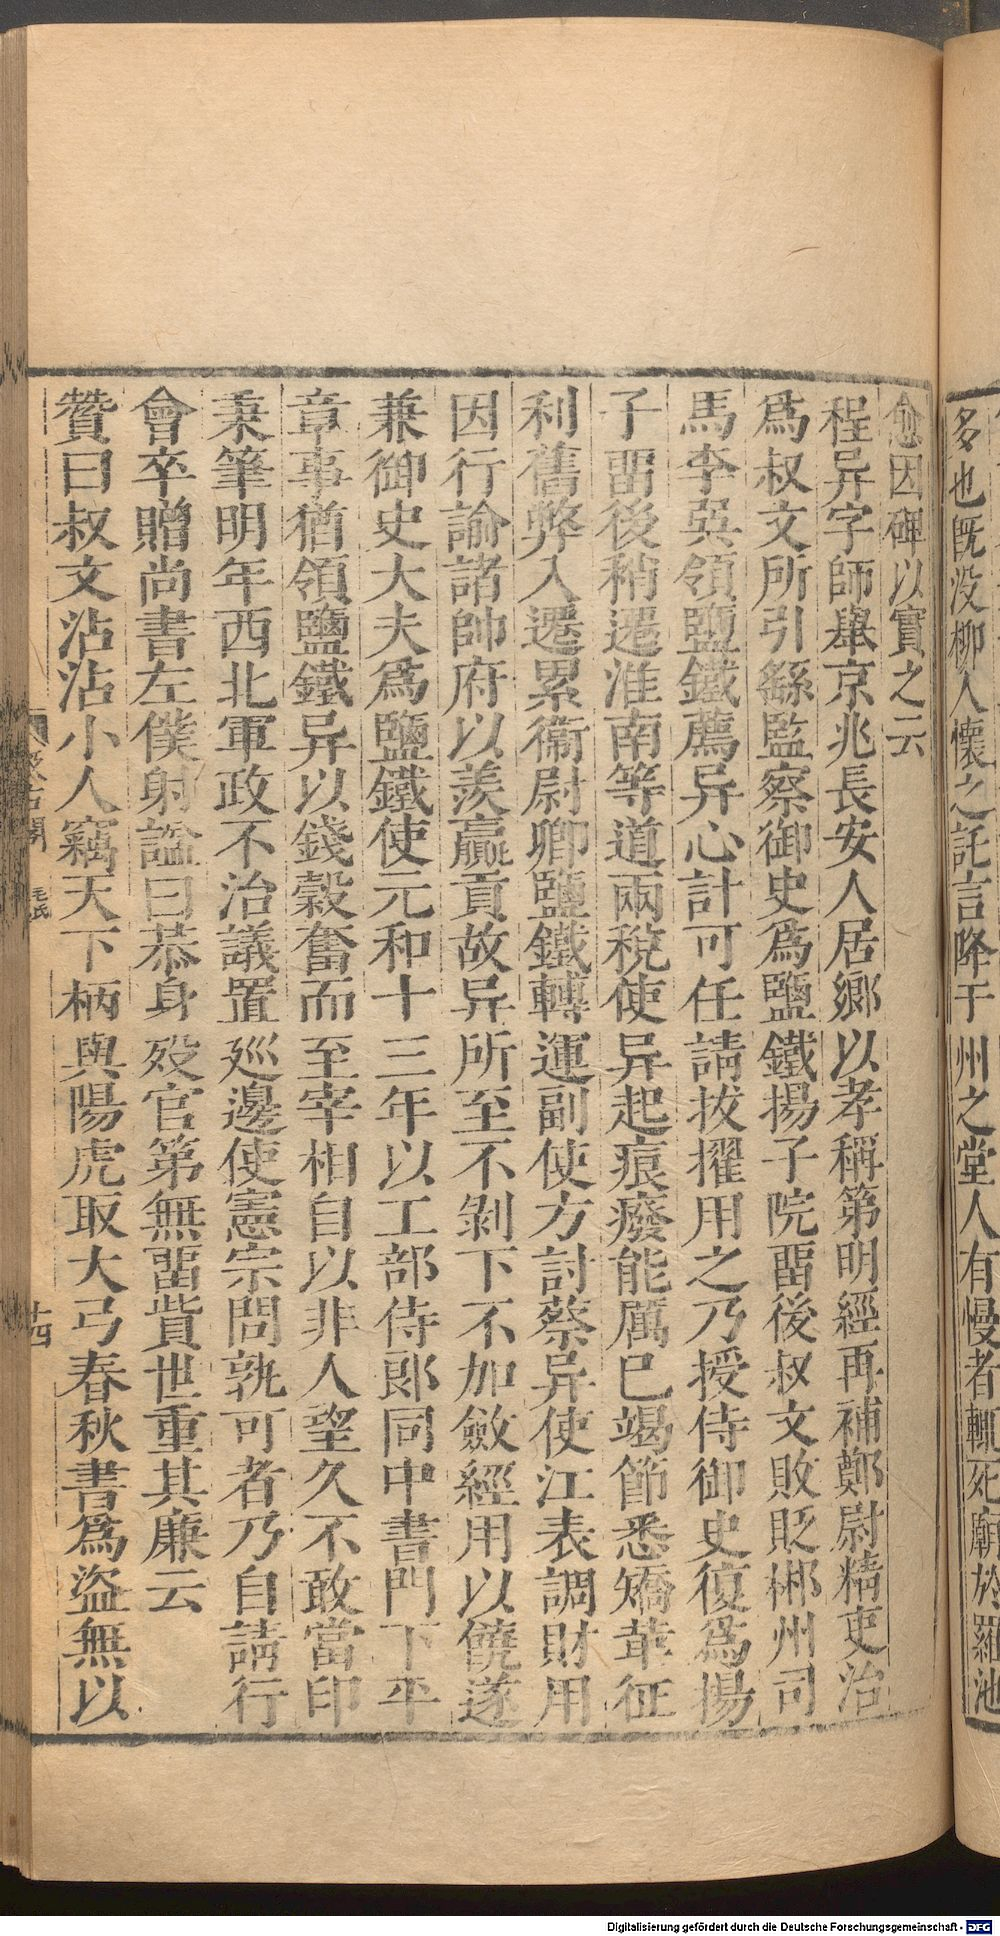 多也旣没柳人懷之託言降于州之堂人有慢者輒死廟於羅池
愈因碑以實之云
程异字師舉京兆長安人居鄉以孝稱第明經再補鄭尉精吏治
爲叔文所引繇監察御史爲鹽鐵揚子院畱後叔文敗貶郴州司
馬李巽領鹽鐵薦异心計可任請拔擢用之乃授侍御史復爲揚
子畱後稍遷淮南等道兩稅使异起痕廢能厲已竭節悉矯革征
利舊弊入遷累衞尉卿鹽鐵轉運副使方討蔡异使江表調財用
因行諭諸帥府以羨贏貢故异所至不剝下不加斂經用以饒遂
兼御史大夫爲鹽鐵使元和十三年以工部侍郎同中書門下平
章事猶領鹽鐵异以錢穀奮而至宰相自以非人望久不敢當印
秉筆明年西北軍政不治議置廵邊使憲宗問孰可者乃自請行
會卒贈尚書左僕射謚曰恭身歿官第無畱貲世重其廉云
贊曰叔文沾沾小人竊天下柄與陽虎取大弓春秋書爲盜無以
汲古閣
毛氏
十四
Digitalisierung gefördert durch die Deutsche Forschungsgemeinschaft - DFG